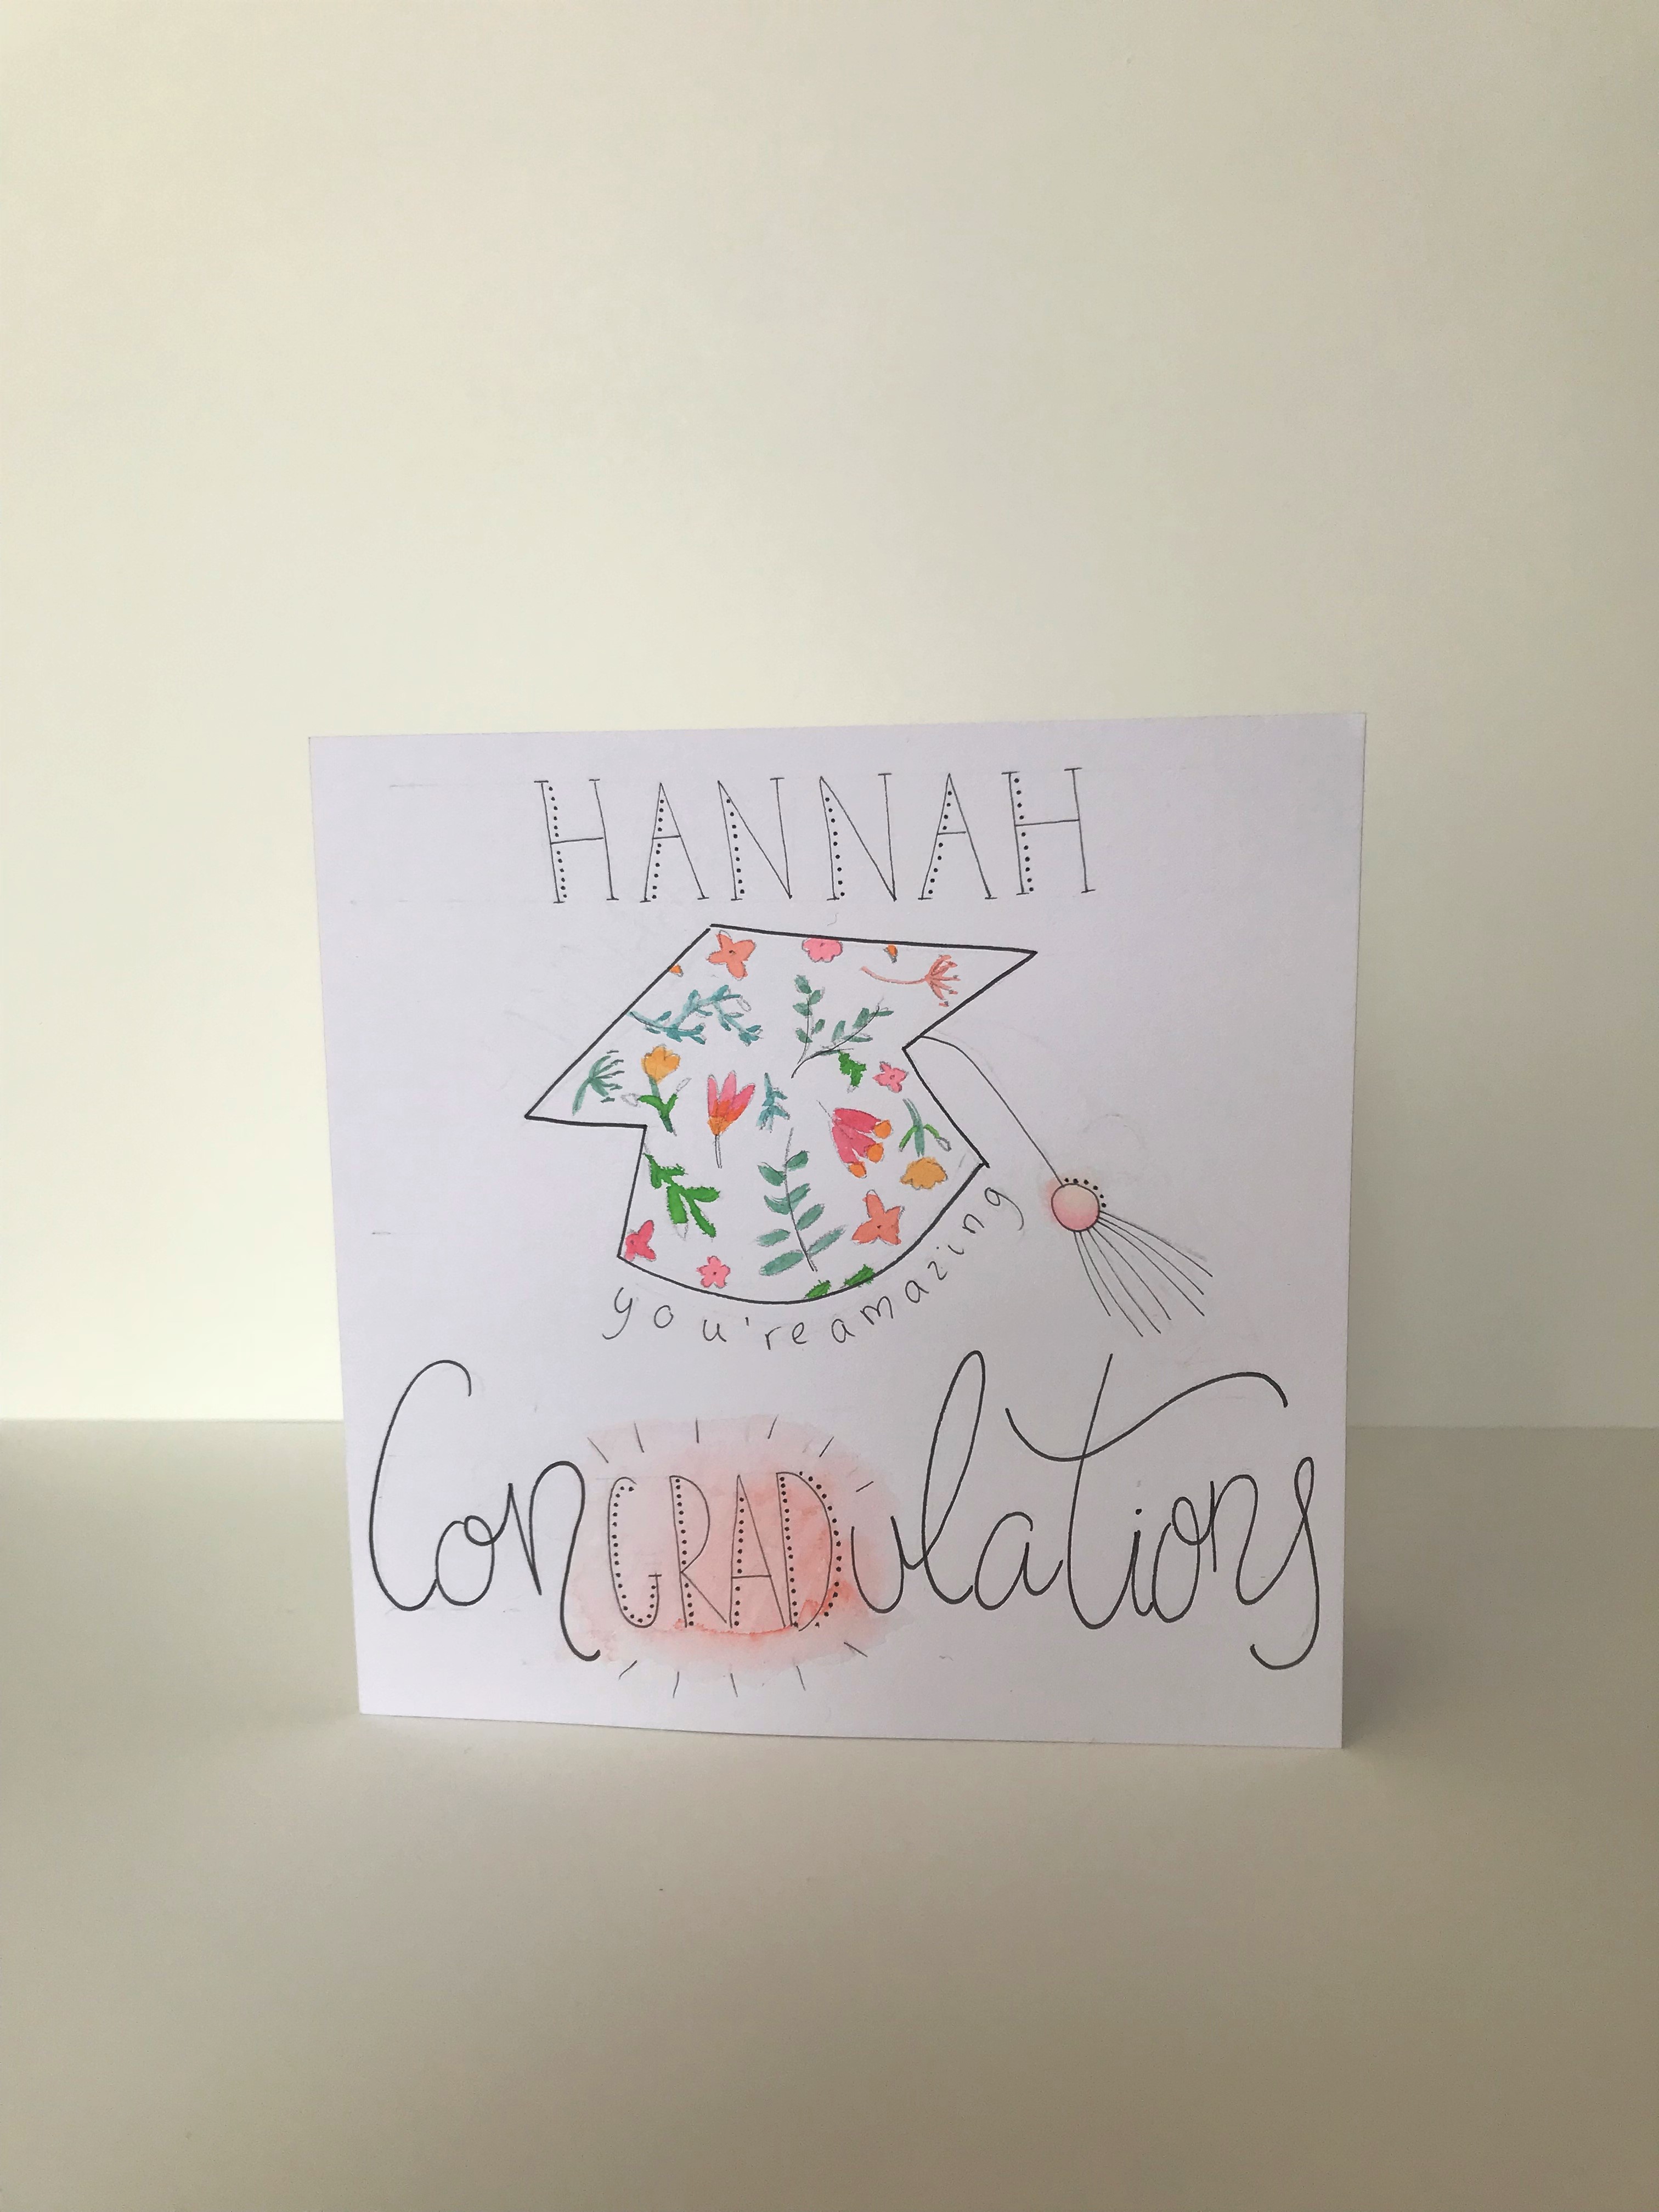 HANNAH
you're amazing
ConGRADulations